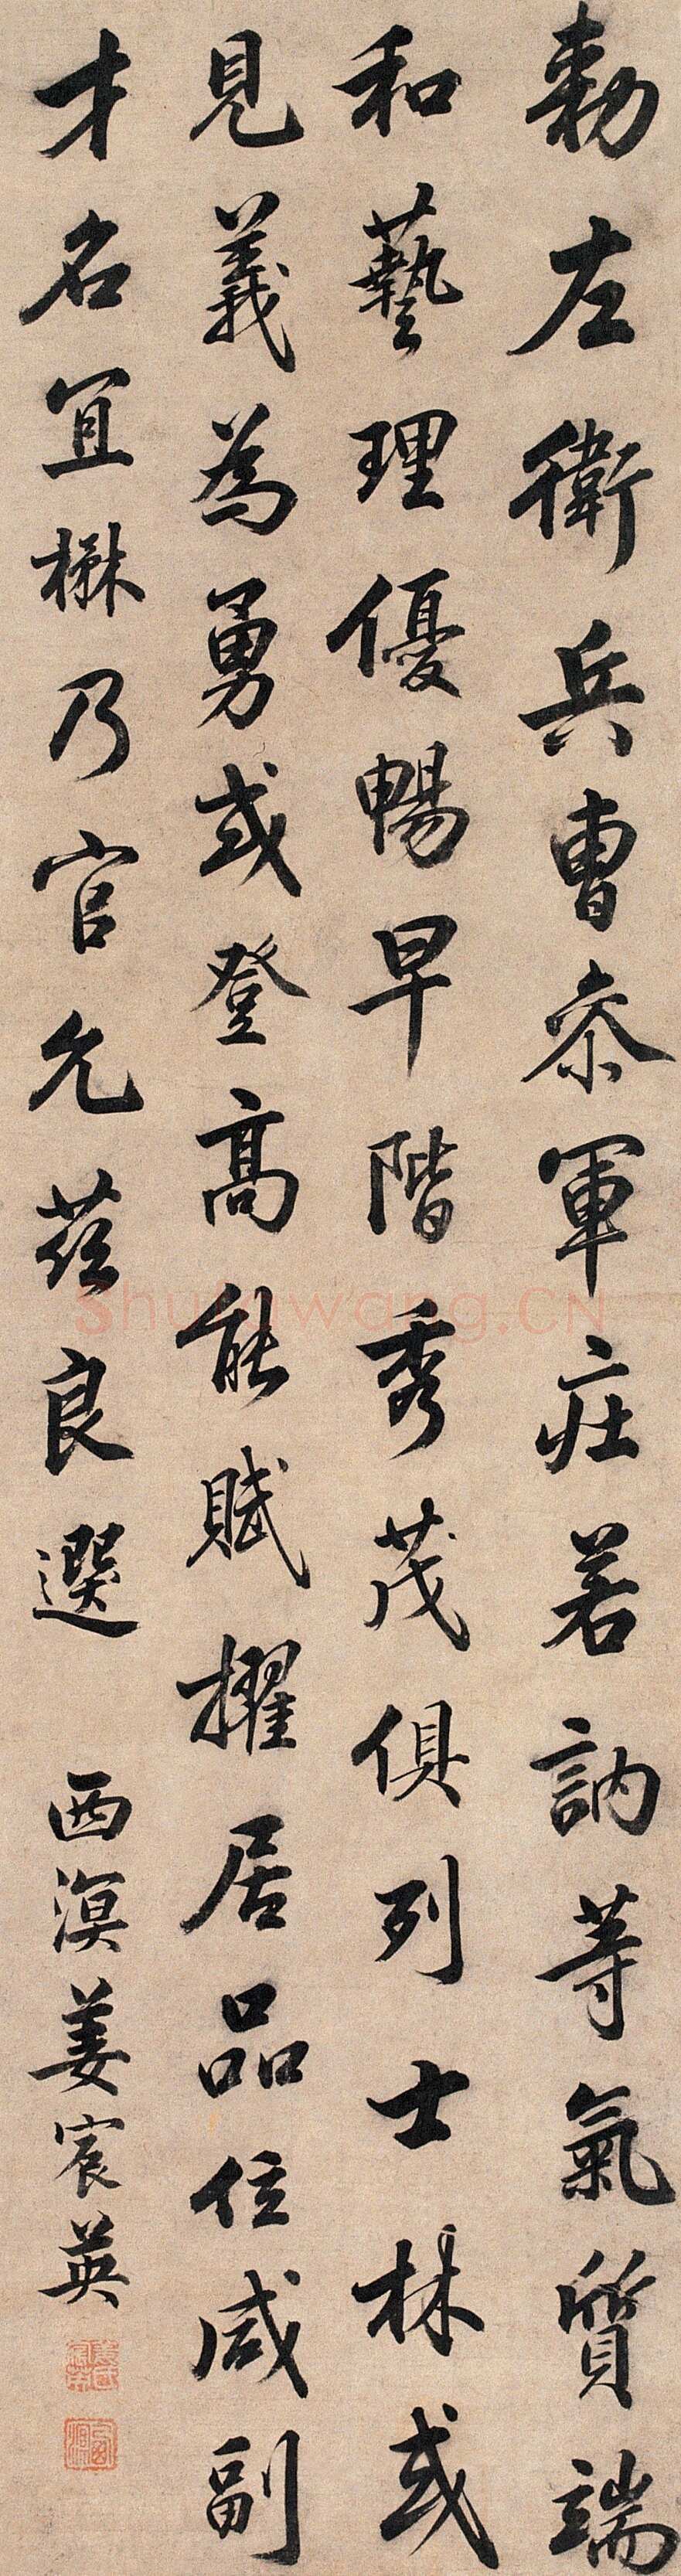 勅左衛兵曹叅軍庄若訥等氣質端
和藝理優暢早階秀茂俱列士林或
見義為勇或登高能賦擢居品位咸副
才名宜楙乃官允茲良選
西溟姜宸英
shufawang.CN